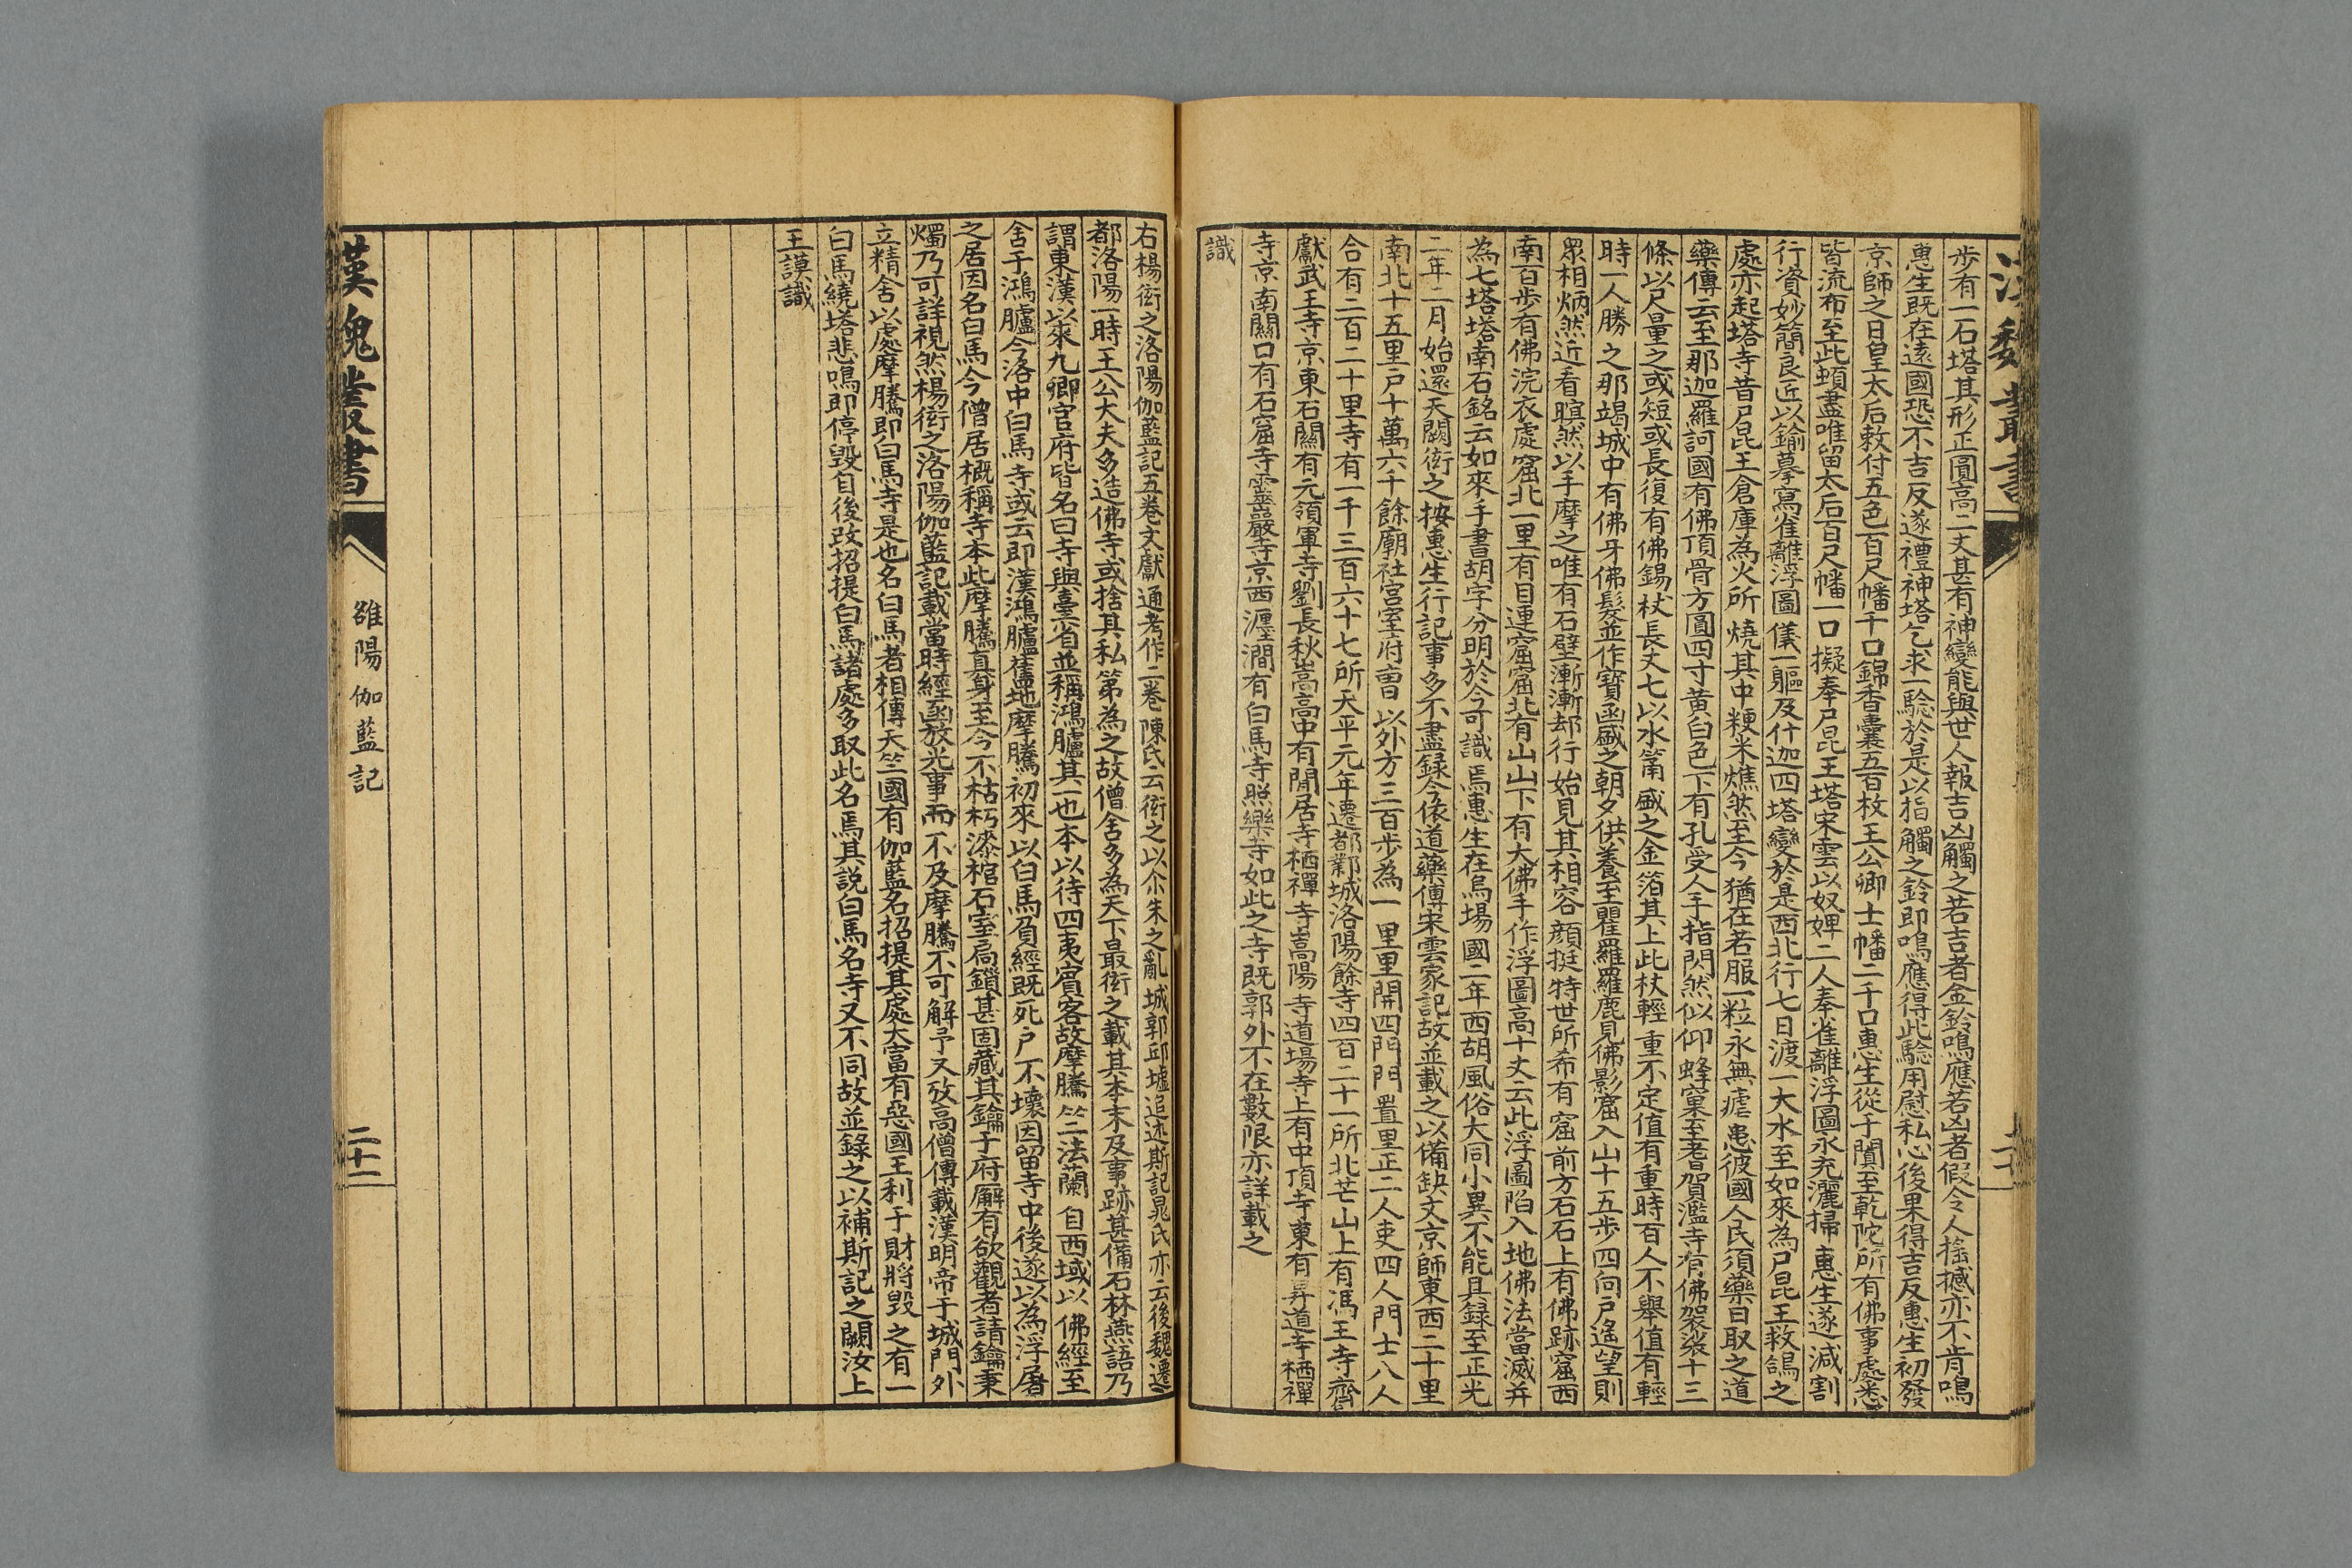 漢魏叢書
步有一石塔其形正圓高二丈甚有神變能與世人報吉凶觸之若吉者金鈴鳴應若凶者假令人搖撼亦不肯鳴
惠生既在遠國恐不吉反遂禮神塔乞求一驗於是以指觸之鈴即鳴應得此驗用慰私心後果得吉反惠生初發
京師之日皇太后敕付五色百尺幡千口錦香囊五百枚王公卿士幡二千口惠生從于闐至乾陀所有佛事處悉
皆流布至此頓盡唯留太后百尺幡一口擬奉尸昆王塔宋雲以奴婢二人奉雀離浮圖永充灑掃惠生遂減割
行資妙簡良匠以鍮摹寫雀離浮圖儀一軀及什迦四塔變於是西北行七日渡一大水至如來為尸昆王救鴿之
處亦起塔寺昔尸昆王倉庫為火所燒其中粳米燋然至今猶在若服一粒永無瘧患彼國人民須藥日取之道
藥傳云至那迦羅訶國有佛頂骨方圓四寸黃白色下有孔受人手指閃然似仰蜂窠至耆賀濫寺有佛袈裟十三
條以尺量之或短或長復有佛錫杖長丈七以水筩盛之金箔其上此杖輕重不定值有重時百人不舉值有輕
時一人勝之那竭城中有佛牙佛髮並作寶函盛之朝夕供養至瞿羅羅鹿見佛影窟入山十五步四向戶遙望則
眾相炳然近看暄然以手摩之唯有石壁漸漸却行始見其相容顏挺特世所希有窟前方石石上有佛跡窟西
南百步有佛浣衣處窟北一里有目連窟窟北有山山下有大佛手作浮圖高十丈云此浮圖陷入地佛法當滅并
為七塔塔南石銘云如來手書胡字分明於今可識焉惠生在烏場國二年西胡風俗大同小異不能具録至正光
二年二月始還天闕衒之按惠生行記事多不盡録今依道藥傳宋雲家記故並載之以備缺文京師東西二十里
南北十五里戶十萬六千餘廟社宮室府曹以外方三百步為一里里開四門門置里正二人吏四人門士八人
合有二百二十里寺有一千三百六十七所天平元年遷都鄴城洛陽餘寺四百二十一所北芒山上有馮王寺齊
獻武王寺京東石關有元領軍寺劉長秋嵩高中有閒居寺栖禪寺嵩陽寺道場寺上有中頂寺東有昇道寺栖禪
寺京南關口有石窟寺靈巖寺京西瀍澗有白馬寺照樂寺如此之寺既郭外不在數限亦詳載之
識
右楊衒之洛陽伽藍記五卷文獻通考作二卷陳氏云衒之以尒朱之亂城郭邱墟追述斯記晁氏亦云後魏遷
都洛陽一時王公大夫多造佛寺或捨其私第為之故僧舍多為天下最衒之載其本末及事跡甚備石林燕語乃
謂東漢以來九卿官府皆名曰寺與臺省並稱鴻臚其一也本以待四夷賓客故摩騰竺法蘭自西域以佛經至
舍于鴻臚今洛中白馬寺或云即漢鴻臚舊地摩騰初來以白馬負經既死尸不壞因留寺中後遂以為浮屠
之居因名白馬今僧居概稱寺本此摩騰真身至今不枯朽漆棺石室扃鎖甚固藏其鑰于府廨有欲觀者請鑰秉
燭乃可詳視然楊衒之洛陽伽藍記載當時經函放光事而不及摩騰不可解予又攷高僧傳載漢明帝于城門外
立精舍以處摩騰即白馬寺是也名白馬者相傳天竺國有伽藍名招提其處大富有惡國王利于財將毀之有一
白馬繞塔悲鳴即停毀自後改招提白馬諸處多取此名焉其說白馬名寺又不同故並錄之以補斯記之闕汝上
王謨識
漢魏叢書
雒陽伽藍記
二十一